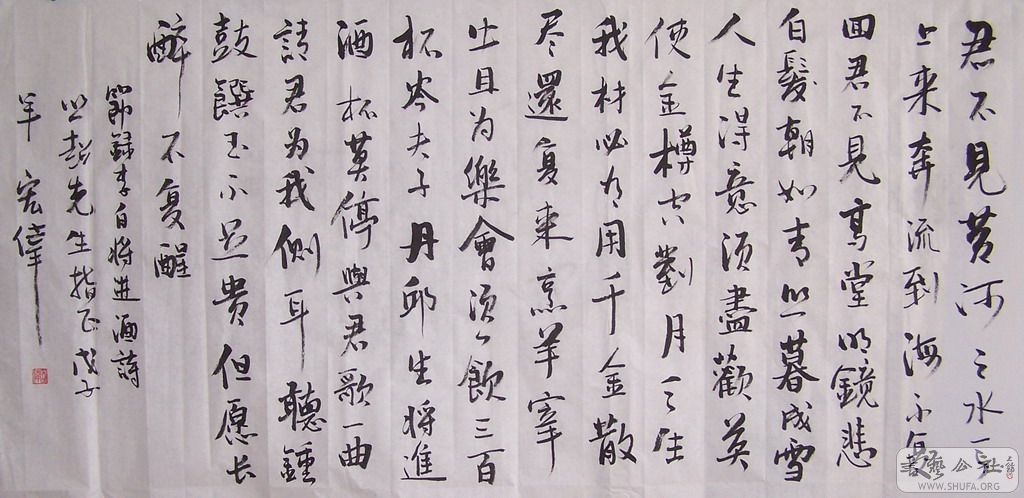 君不見黄河之水天
上来奔流到海不复
回君不見高堂明鏡悲
白髮朝如青丝暮成雪
人生得意须盡歡莫
使金樽空對月天生
我材必有用千金散
尽還复来烹羊宰
牛且为樂會须一飲三百
杯岑夫子丹邱生将進
酒杯莫停與君歌一曲
請君为我側耳聽鐘
鼓饌玉不足贵但愿长
醉不复醒
節録李白将进酒詩
超先生指正戊子
年宏偉
書藝公社
WWW.SHUFA.ORG